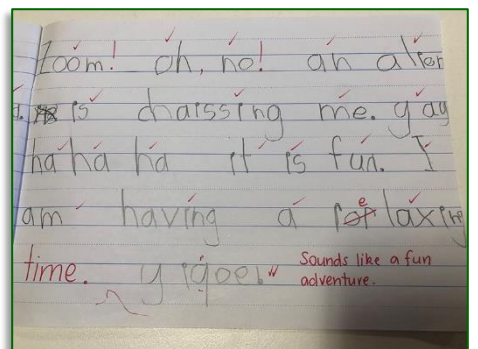 Zoom! oh, no! an alien
is chaissing me. yay
ha ha ha it is fun. I
am having a relaxing
time.
Sounds like a fun
adventure.